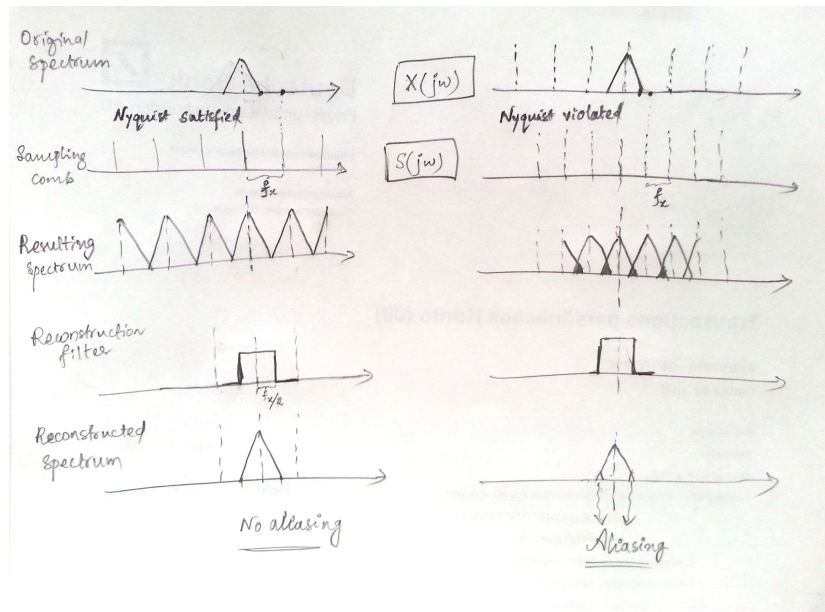 Original
Spectrum
X(jω)
Nyquist satisfied
Nyquist violated
Sampling
comb
S(jω)
fx
fx
Resulting
Spectrum
Reconstruction
filter
fx/2
Reconstructed
Spectrum
No aliasing
Aliasing